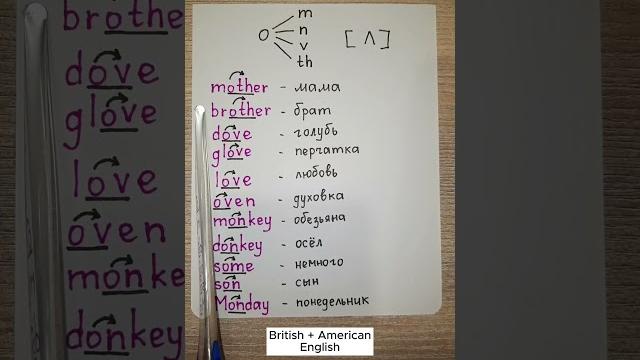 m
n
O v [ʌ]
th
mother - мама
brother - брат
dove - голубь
glove - перчатка
love - любовь
oven - духовка
monkey - обезьяна
donkey - осёл
some - немного
son - сын
Monday - понедельник
brother
dove
glove
love
oven
monke
donkey
British + American
English